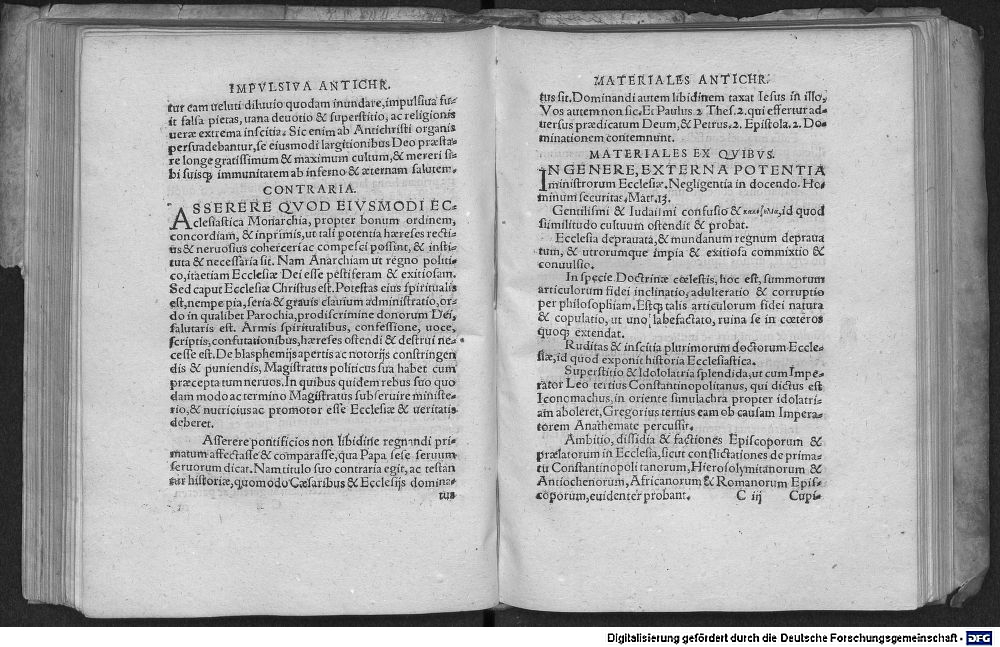 IMPVLSIVA ANTICHR.
tur eam ueluti diluuio quodam inundare, impulsiua fu-
it falsa pietas, uana deuotio & superstitio, ac religionis
ueræ extrema inscitia. Sic enim ab Antichristi organis
persuadebantur, se eiusmodi largitionibus Deo præsta-
re longe gratissimum & maximum cultum, & mereri si-
bi suisq; immunitatem ab inferno & æternam salutem.
CONTRARIA.
ASSERERE QVOD EIVSMODI EC-
clesiastica Monarchia, propter bonum ordinem,
concordiam, & inprimis, ut tali potentia hæreses recti-
us & neruosius coherceri ac compesci possint, & insti-
tuta & necessaria sit. Nam Anarchiam ut regno politi-
co, ita etiam Ecclesiæ Dei esse pestiferam & exitiosam.
Sed caput Ecclesiæ Christus est. Potestas eius spiritualis
est, nempe pia, seria & grauis clauium administratio, or-
do in qualibet Parochia, pro discrimine donorum Dei,
salutaris est. Armis spiritualibus, confessione, uoce,
scriptis, confutationibus, hæreses ostendi & destrui ne-
cesse est. De blasphemijs apertis ac notorijs constringen
dis & puniendis, Magistratus politicus sua habet cum
præcepta tum neruos. In quibus quidem rebus suo quo
dam modo ac termino Magistratus subseruire ministe-
rio, & nutricius ac promotor esse Ecclesiæ & ueritatis
deberet.
Asserere pontificios non libidine regnandi pri-
matum affectasse & comparasse, qua Papa sese seruum
seruorum dicat. Nam titulo suo contraria egit, ac testan
tur historiæ, quomodo Cæsaribus & Ecclesijs domina-
tus
MATERIALES ANTICHR.
tus sit. Dominandi autem libidinem taxat Iesus in illo,
Vos autem non sic. Et Paulus 2 Thes. 2. qui effertur ad-
uersus prædicatum Deum, & Petrus. 2. Epistola. 2. Do-
minationem contemnunt.
MATERIALES EX QVIBVS.
IN GENERE, EXTERNA POTENTIA
ministrorum Ecclesiæ. Negligentia in docendo. Ho-
minum securitas. Matt. 13.
Gentilismi & Iudaismi confusio & id quod
similitudo cultuum ostendit & probat.
Ecclesia deprauata, & mundanum regnum depraua
tum, & utrorumque impia & exitiosa commixtio &
conuulsio.
In specie. Doctrinæ cœlestis, hoc est, summorum
articulorum fidei inclinatio, adulteratio & corruptio
per philosophiam. Estq; talis articulorum fidei natura
& copulatio, ut uno labefactato, ruina se in cœteros
quoq; extendat.
Ruditas & inscitia plurimorum doctorum Eccle-
siæ, id quod exponit historia Ecclesiastica.
Superstitio & Idololatria splendida, ut cum Impe-
rator Leo tertius Constantinopolitanus, qui dictus est
Iconomachus, in oriente simulachra propter idolatri-
am aboleret, Gregorius tertius eam ob causam Impera-
torem Anathemate percussit.
Ambitio, dissidia & factiones Episcoporum &
prælatorum in Ecclesia, sicut conflictationes de prima-
tu Constantinopolitanorum, Hierosolymitanorum &
Antiochenorum, Africanorum & Romanorum Epis-
coporum, euidenter probant. C iij Cupi-
Digitalisierung gefördert durch die Deutsche Forschungsgemeinschaft - DFG